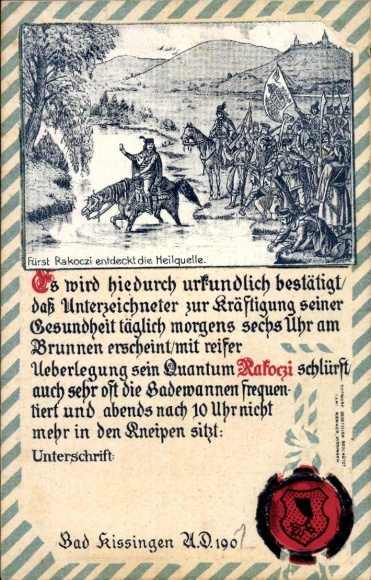 Fürst Rakoczi entdeckt die Heilquelle.
Es wird hiedurch urkundlich bestätigt/
daß Unterzeichneter zur Kräftigung seiner
Gesundheit täglich morgens sechs Uhr am
Brunnen erscheint/mit reifer
Ueberlegung sein Quantum Rakoczi schlürft/
auch sehr oft die Badewannen frequen-
tiert und abends nach 10 Uhr nicht
mehr in den Kneipen sitzt:
Unterschrift:
Bad Kissingen A.D. 190